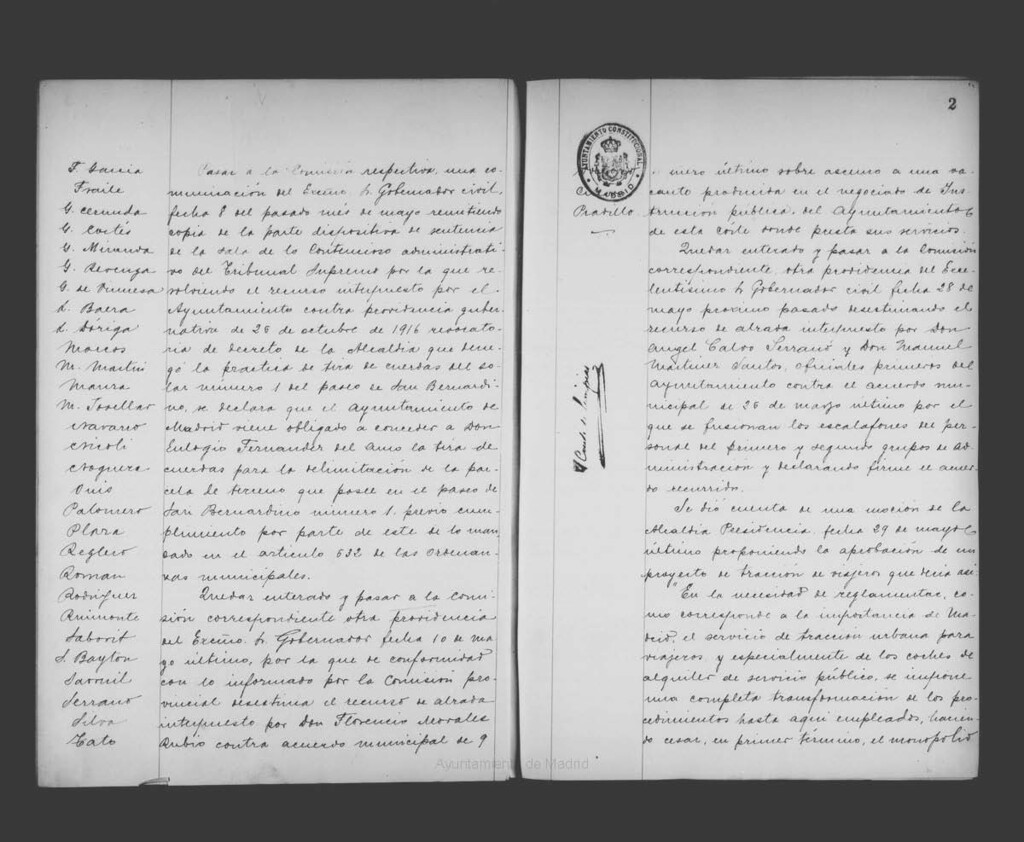 F. García
Fraile
G. Cernuda
G. Cortés
G. Miranda
G. Revenga
G. de Vinuesa
L. Baera
L. Dóriga
Marcos
M. Martin
Maura
M. Tovellar
Navarro
Nicoli
Noguera
Onis
Palomero
Plaza
Reglero
Roman
Rodríguez
Ruimonte
Saborit
S. Bayton
Sarmil
Serrano
Silva
Tato
Pasar a la Comisión respectiva, una co-
municación del Excmo. Sr. Gobernador civil,
fecha 8 del pasado mes de mayo remitiendo
copia de la parte dispositiva de sentencia
de la Sala de lo Contencioso administrati-
vo del Tribunal Supremo por la que re-
solviendo el recurso interpuesto por el
Ayuntamiento contra providencia guber-
nativa de 25 de octubre de 1916 revocato-
ria de decreto de la Alcaldía que dene-
gó la practica de tira de cuerdas del so-
lar número 1 del paseo de San Bernardi-
no, se declara que el Ayuntamiento de
Madrid viene obligado a conceder a Don
Eulogio Fernandez del Amo la tira de
cuerdas para la delimitación de la par-
cela de terreno que posee en el paseo de
San Bernardino número 1. previo cum-
plimiento por parte de este de lo man-
dado en el articulo 632 de las Ordenan-
zas municipales.
Quedar enterado y pasar a la Comi-
sión correspondiente otra providencia
del Excmo. Sr. Gobernador fecha 10 de ma-
yo último, por la que de conformidad
con lo informado por la Comisión pro-
vincial desestima el recurso de alzada
interpuesto por Don Florencio Morales
Rubio contra acuerdo municipal de 9
2
AYUNTAMIENTO CONSTITUCIONAL
MADRID
Pradillo
El Conde de Limpias
mero último sobre ascenso a una va-
cante producida en el negociado de Ins-
trucción pública, del Ayuntamiento
de esta córte donde presta sus servicios.
Quedar enterado y pasar a la Comisión
correspondiente, otra providencia del Exce-
lentísimo Sr. Gobernador civil fecha 28 de
mayo próximo pasado desestimando el
recurso de alzada interpuesto por Don
Angel Calvo Serrano y Don Manuel
Martinez Santos, oficiales primeros del
Ayuntamiento contra el acuerdo mu-
nicipal de 25 de marzo último por el
que se fusionan los escalafones del per-
sonal del primero y segundo grupos de Ad-
ministración y declarando firme el acuer-
do recurrido.
Se dió cuenta de una moción de la
Alcaldía Presidencia, fecha 29 de mayo
último proponiendo la aprobación de un
proyecto de tracción de viajeros que decia asi:
"En la necesidad de reglamentar, co-
mo corresponde a la importancia de Ma-
drid, el servicio de tracción urbana para
viajeros y especialmente de los coches de
alquiler de servicio público, se impone
una completa transformación de los pro-
cedimientos hasta aqui empleados, hacien-
do cesar, en primer término, el monopolio
Ayuntamiento de Madrid